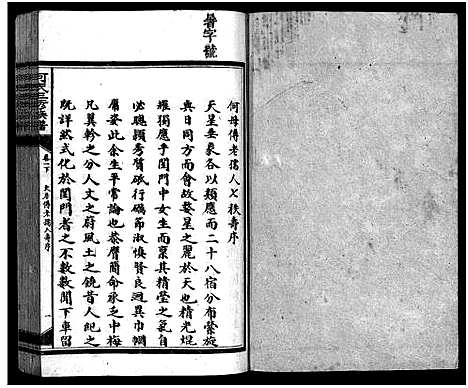 晉字號
何母傅老孺人七秩壽序
天星垂象各以類應而二十八宿分布縈旋
與日同方而會故婺星之麗於天也精光焜
耀獨應乎閨門中女生而稟其精瑩之氣自
必聰穎秀質砥行礪節淑慎賢良迥異巾幗
庸姿此余生平常論也恭膺簡命承乏中梅
凡翼軫之分人文之蔚風土之饒昔人紀之
既詳然式化於閨門者之不數數聞下車留
卷一下
大房傅老孺人壽序
一